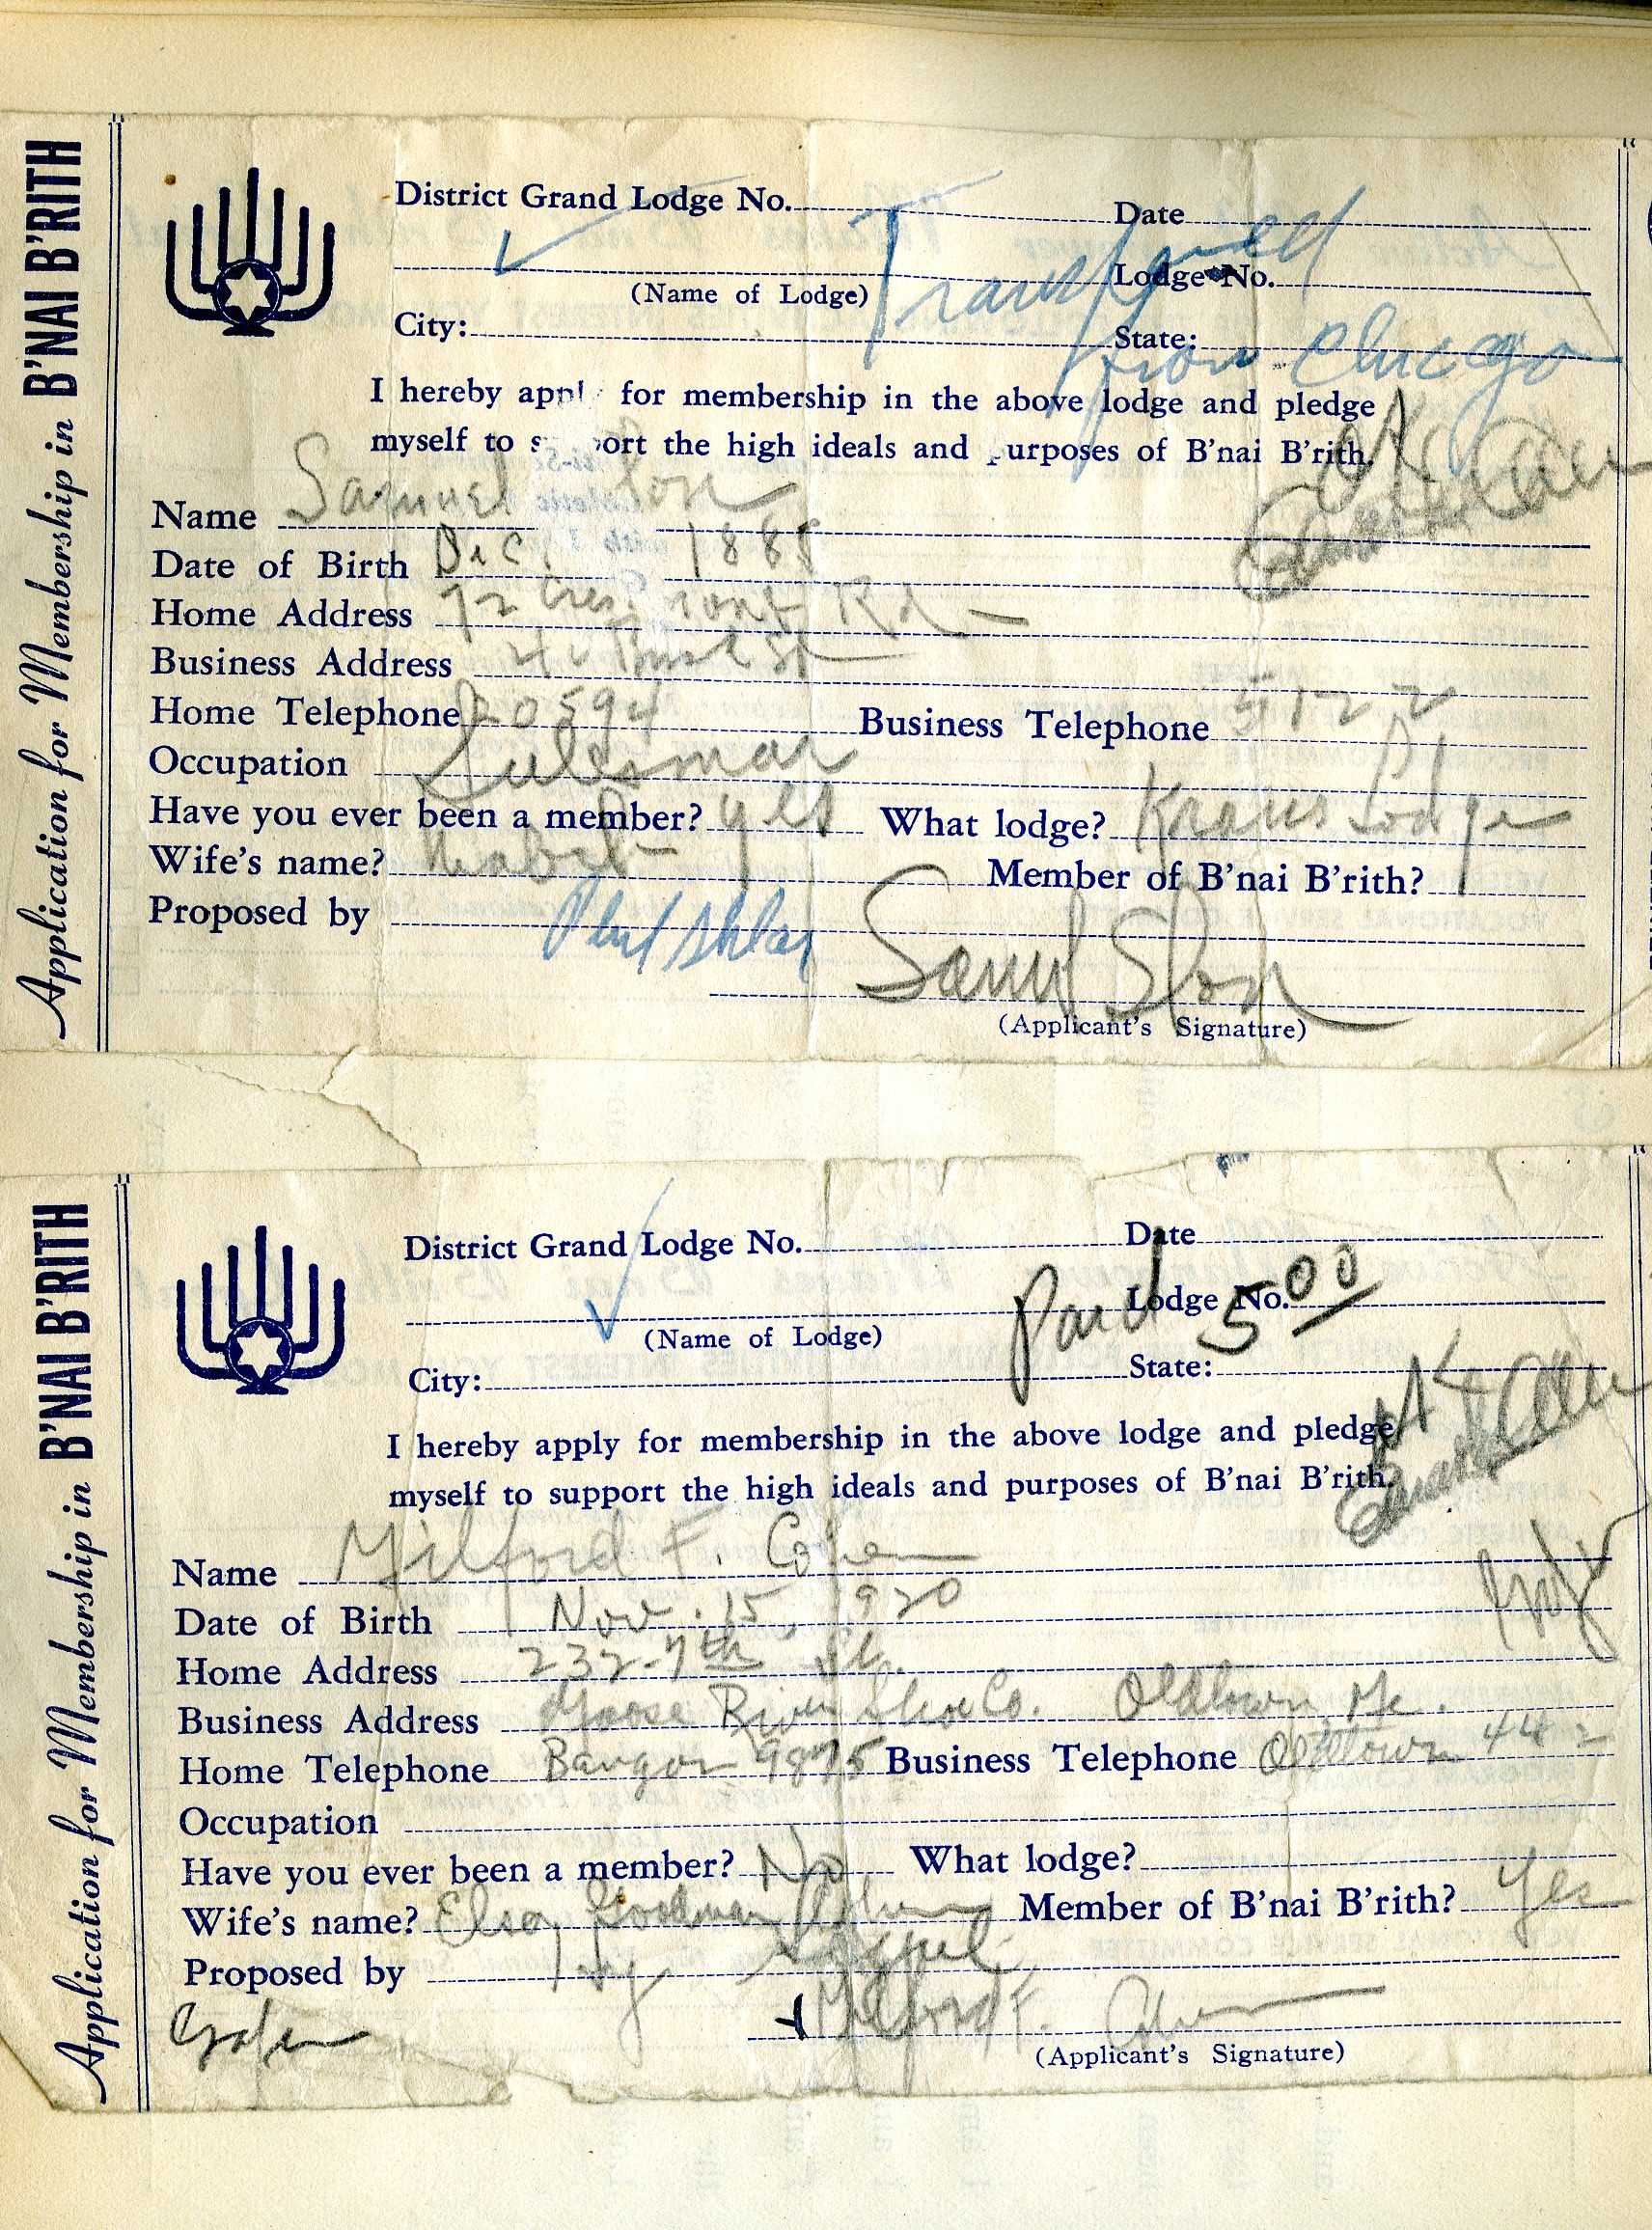 Application for Membership in B'NAI B'RITH
District Grand Lodge No.
Date
Transferred
(Name of Lodge)
Lodge No.
City:
State:
from Chicago
I hereby appl for membership in the above lodge and pledge
myself to s ort the high ideals and urposes of B'nai B'rith.
OK
Name Samuel
Date of Birth Dec 1888
Home Address 72 Mont Rd
Business Address St
Home Telephone 20594 Business Telephone 5122
Occupation Salesman
Have you ever been a member? yes What lodge? Kraus Lodge
Wife's name? Mabel Member of B'nai B'rith?
Proposed by
(Applicant's Signature)
Application for Membership in B'NAI B'RITH
District Grand Lodge No.
Date
Paid 5 00
(Name of Lodge)
Lodge No.
City:
State:
OK
I hereby apply for membership in the above lodge and pledge
myself to support the high ideals and purposes of B'nai B'rith.
Name Milford F. Cohen
Date of Birth Nov. 15, 1920
Home Address 232-7th St.
Business Address Moose River Shoe Co. Oldtown, Me.
Home Telephone Bangor 9875 Business Telephone Oldtown 442
Occupation
Have you ever been a member? No What lodge?
Wife's name? Elsa Goodman Cohen Member of B'nai B'rith? Yes
Proposed by
Milford F. Cohen
(Applicant's Signature)